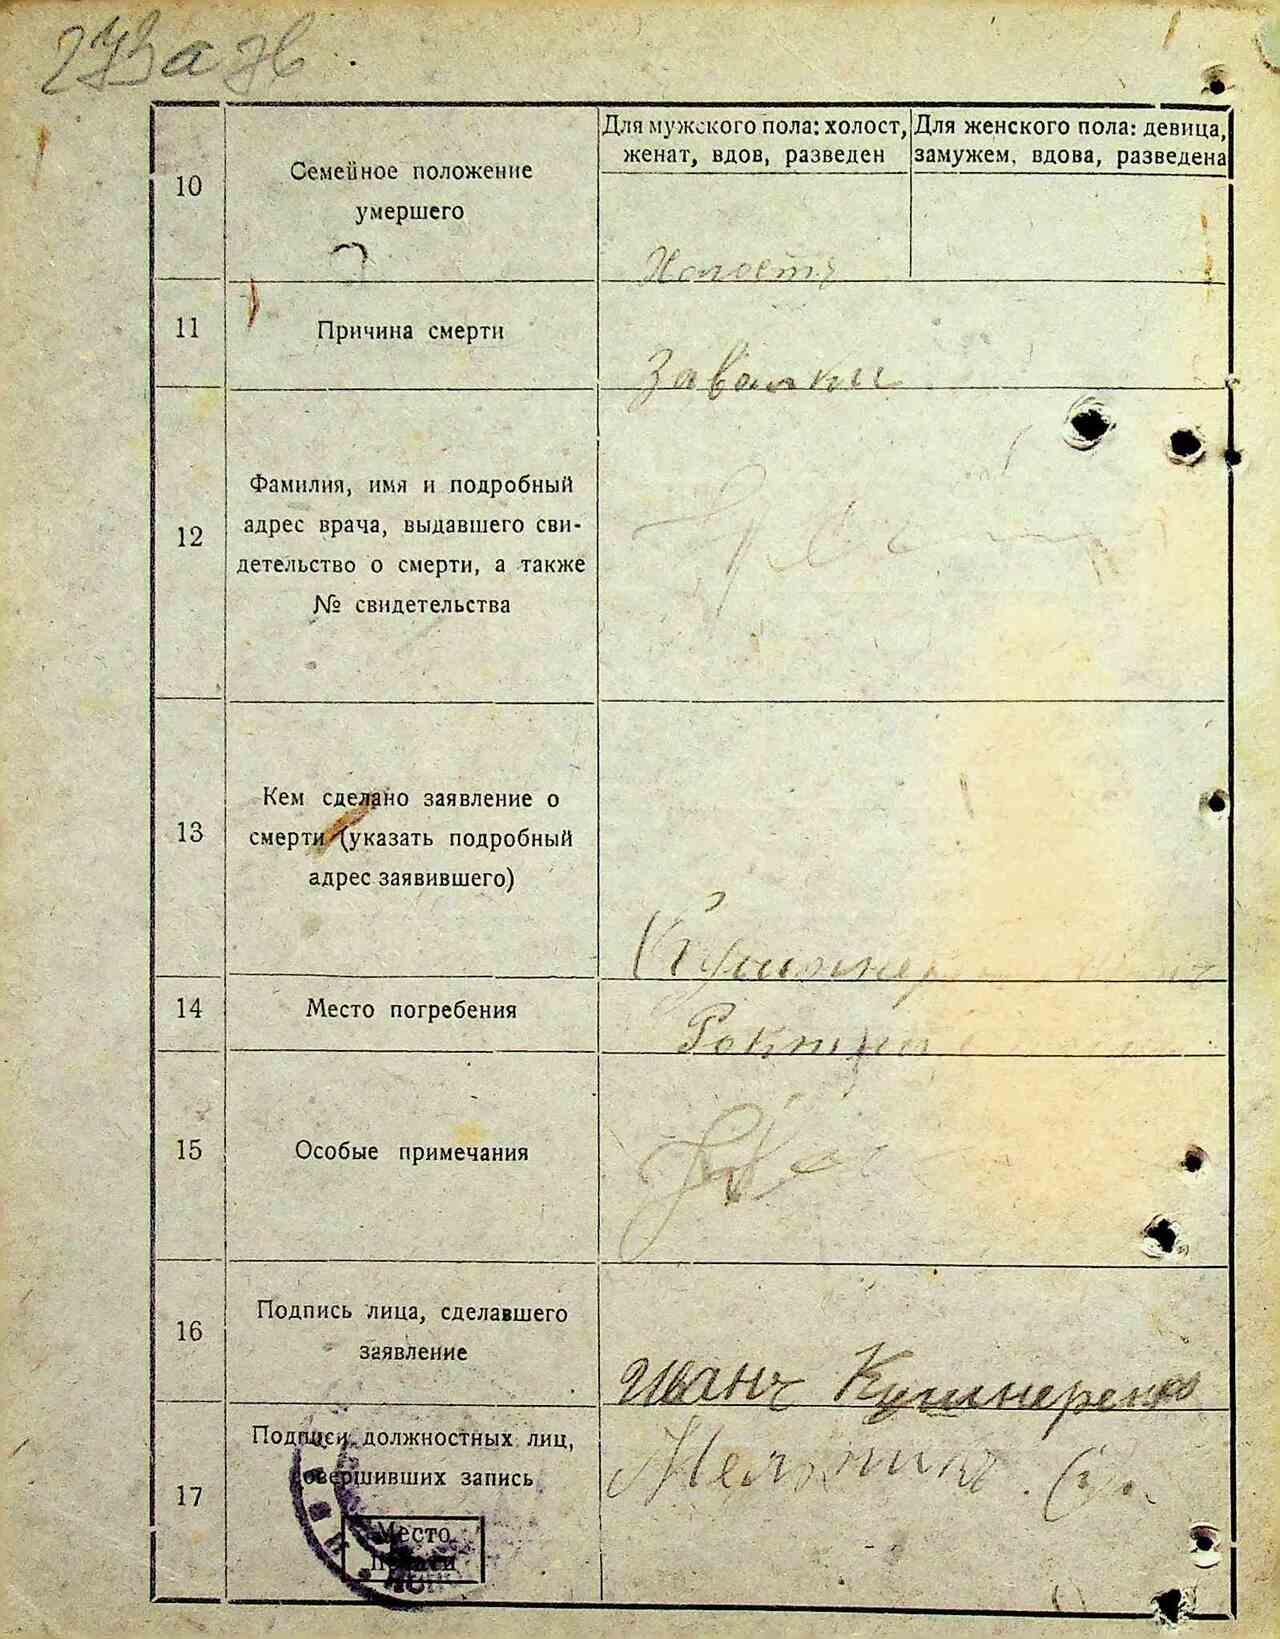 273 а зв
10
Семейное положение
умершего
Для мужского пола: холост,
женат, вдов, разведен
Для женского пола: девица,
замужем, вдова, разведена
Холостъ
11
Причина смерти
12
Фамилия, имя и подробный
адрес врача, выдавшего сви-
детельство о смерти, а также
№ свидетельства
13
Кем сделано заявление о
смерти (указать подробный
адрес заявившего)
14
Место погребения
15
Особые примечания
16
Подпись лица, сделавшего
заявление
Иванъ Кушнеренко
17
Подписи должностных лиц,
совершивших запись
Место
печати
Мельникъ